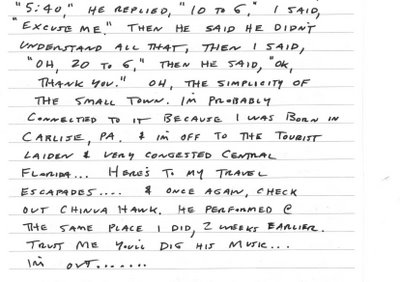 "5:40," HE REPLIED, "10 TO 6," I SAID,
"EXCUSE ME." THEN HE SAID HE DIDN'T
UNDERSTAND ALL THAT, THEN I SAID,
"OH, 20 TO 6," THEN HE SAID, "OK,
THANK YOU." OH, THE SIMPLICITY OF
THE SMALL TOWN. I'M PROBABLY
CONNECTED TO IT BECAUSE I WAS BORN IN
CARLISE, PA. & I'M OFF TO THE TOURIST
LAIDEN & VERY CONGESTED CENTRAL
FLORIDA... HERE'S TO MY TRAVEL
ESCAPADES.... & ONCE AGAIN, CHECK
OUT CHINUA HAWK. HE PERFORMED @
THE SAME PLACE I DID, 2 WEEKS EARLIER.
TRUST ME YOU'LL DIG HIS MUSIC...
I'M OUT.......